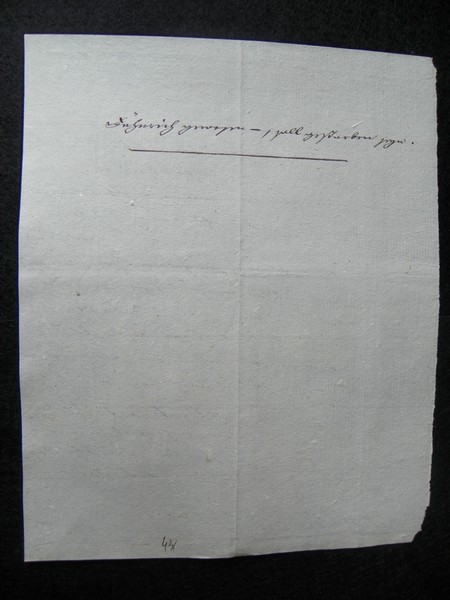 Fähnrich gewesen –, soll gestorben seyn.